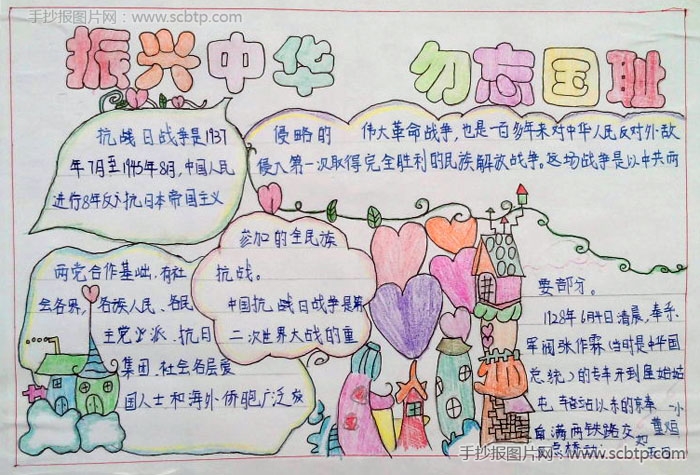 手抄报图片网：www.scbtp.com
振兴中华 勿忘国耻
抗战日战争是1937
年7月至1945年8月，中国人民
进行8年反对抗日本帝国主义
侵略的 伟大革命战争，也是一百多年来对中华人民反对外敌
侵入第一次取得完全胜利的民族解放战争。这场战争是以中共两
两党合作基础，有社
会各界，各族人民、各民
主党派、抗日
集团、社会各层爱
国人士和海外侨胞广泛
参加的全民族
抗战。
中国抗战日战争是第
二次世界大战的重
要部分。
1928年6月4日清晨，奉系
军阀张作霖（当时是中华国
总统）的专车开到
屯 站以东的京奉
南满两铁路交
手抄报图片网：www.scbtp.com